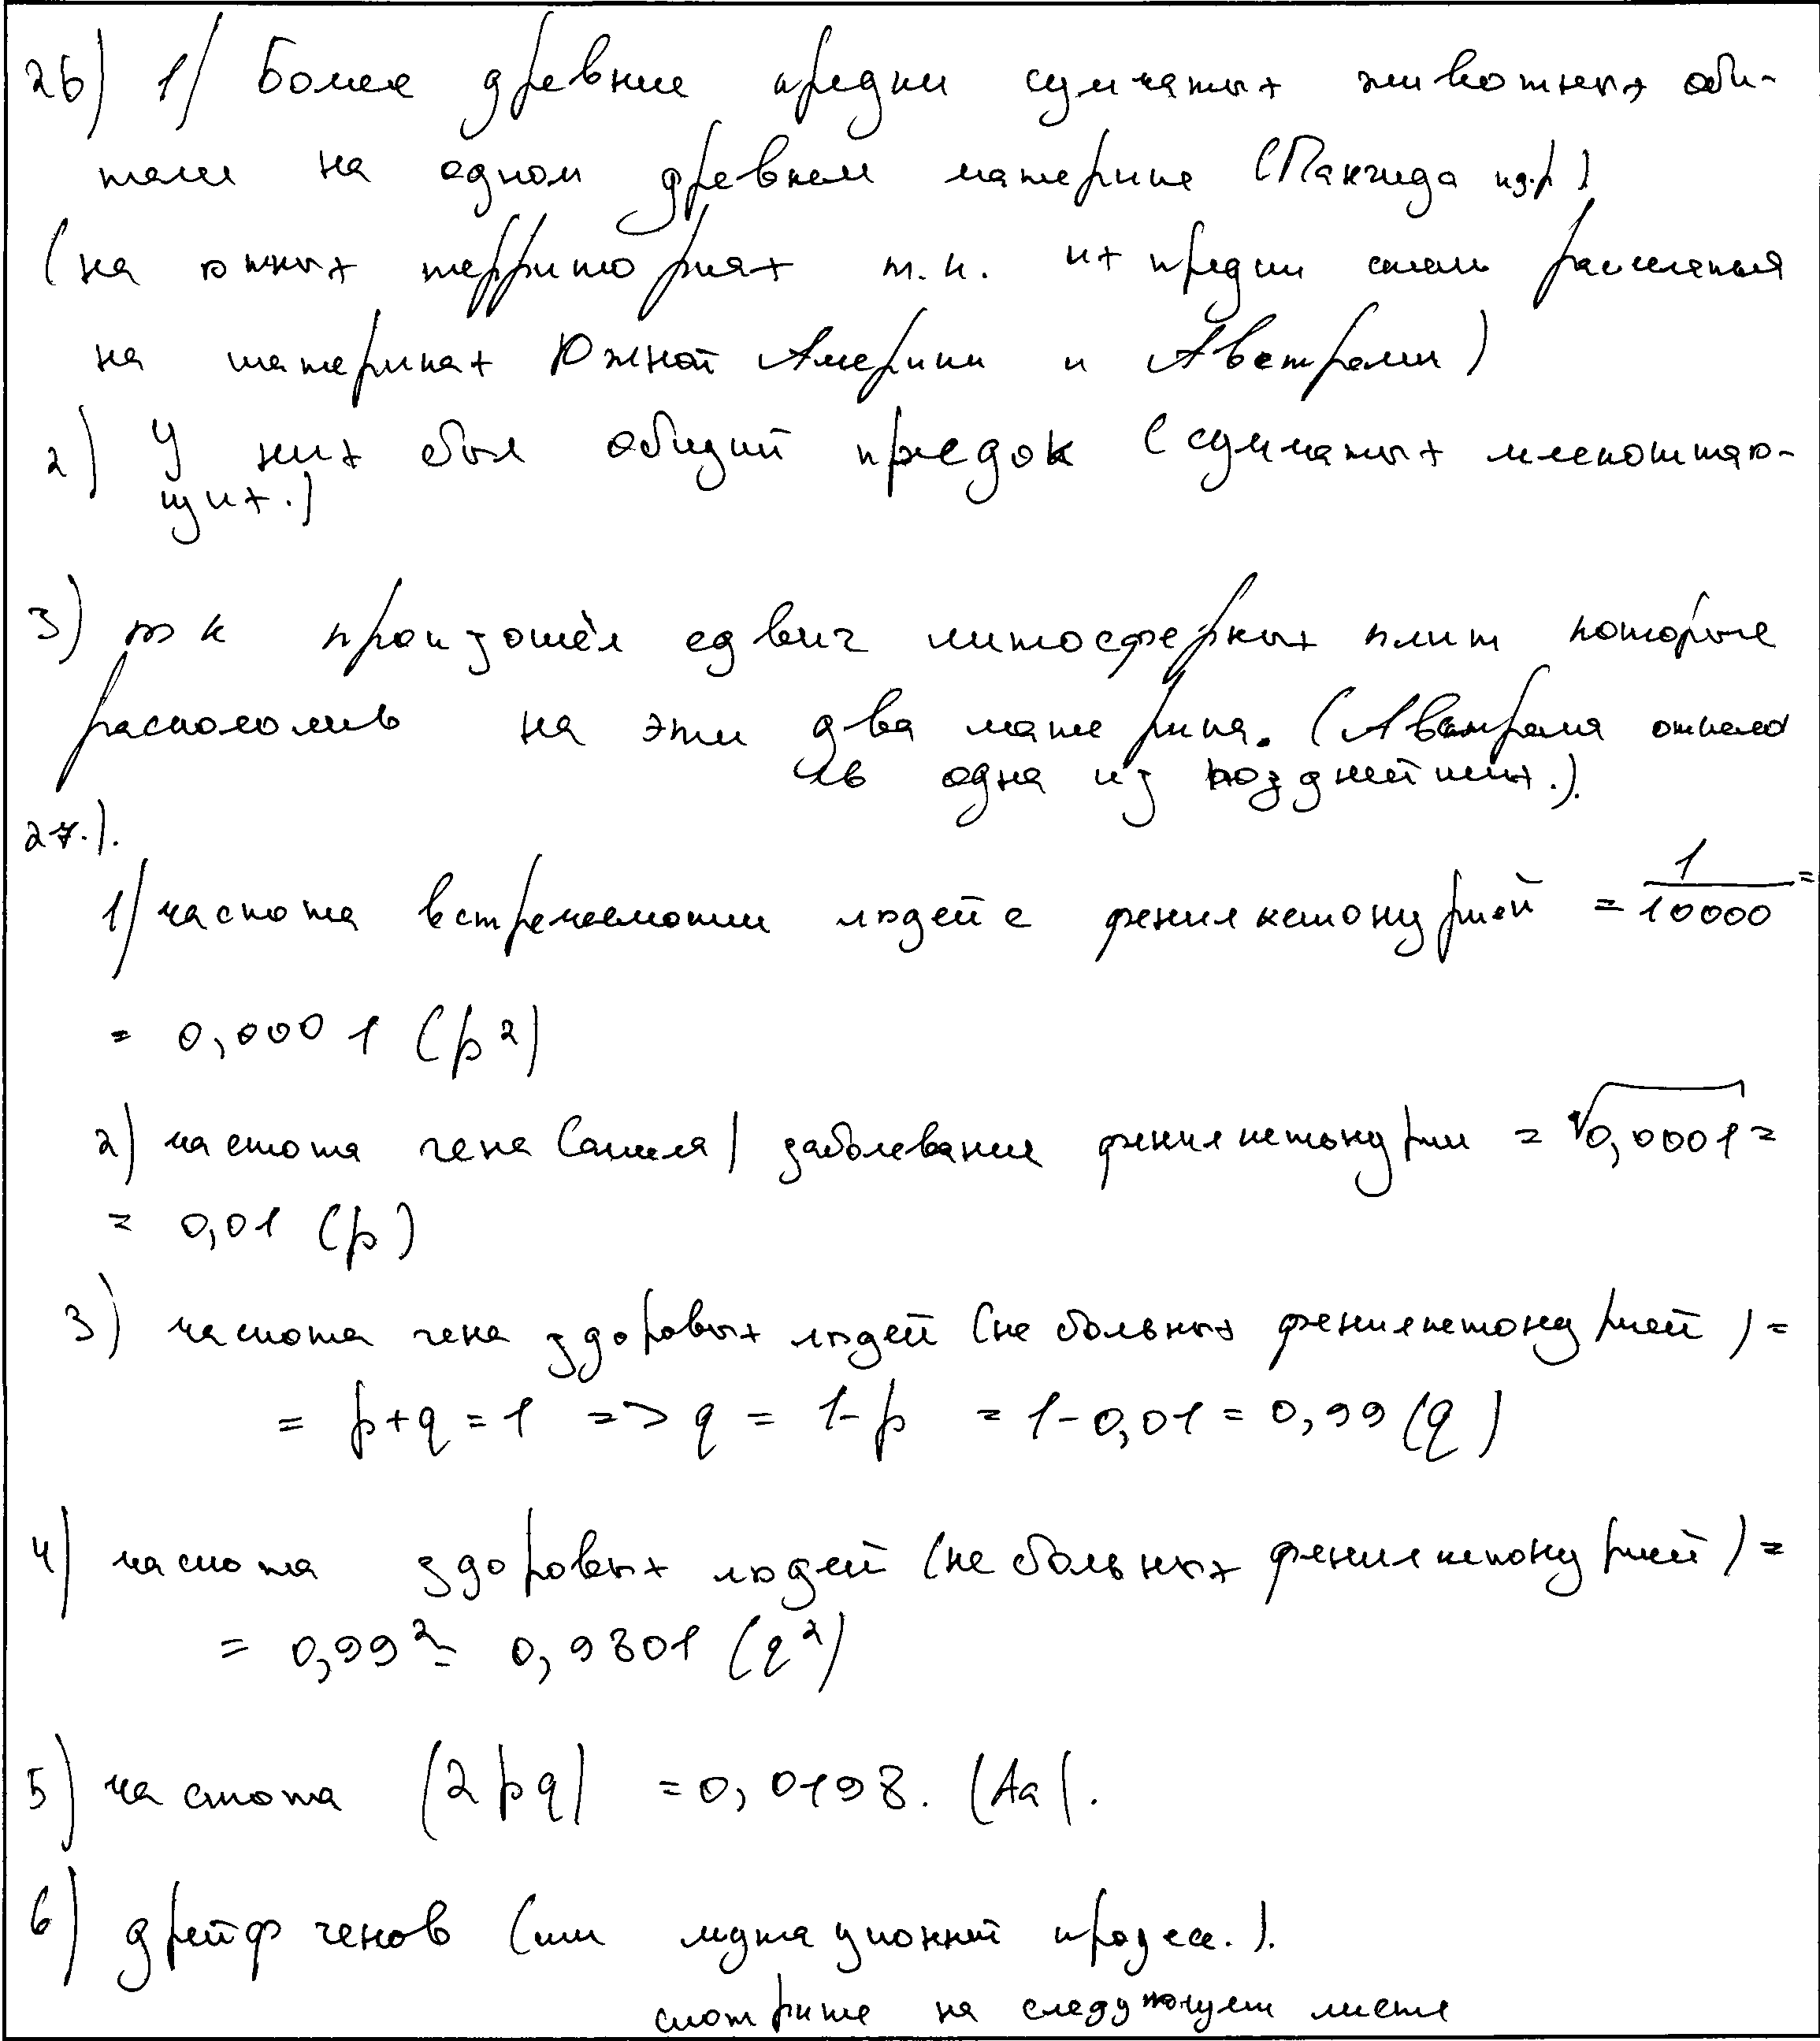 26) 1) Более древние предки сумчатых животных оби-
тали на одном древнем материке (Пангида др.)
(на южных территориях т.к. их предки стали расселяться
на материках Южной Америки и Австралии)
2) У них был общий предок (сумчатых млекопитаю-
щих.)
3) т к произошёл сдвиг литосферных плит которые
раскололись на эти два материка. (Австралия откололо
ль одна из позднейших.).
27.).
1) частота встречаемости людей с фенилкетонурией = 1/10000 =
= 0,0001 (p²)
2) частота гена (аллеля) заболевания фенилкетонурии = √0,0001 =
= 0,01 (p)
3) частота гена здоровых людей (не больных фенилкетонурией) =
= p+q=1 => q = 1-p = 1-0,01=0,99 (q)
4) частота здоровых людей (не больных фенилкетонурией) =
= 0,99² = 0,9801 (q²)
5) частота (2pq) = 0,0198. (Aa).
6) дрейф генов (или мутационный процесс.).
смотрите на следующем листе